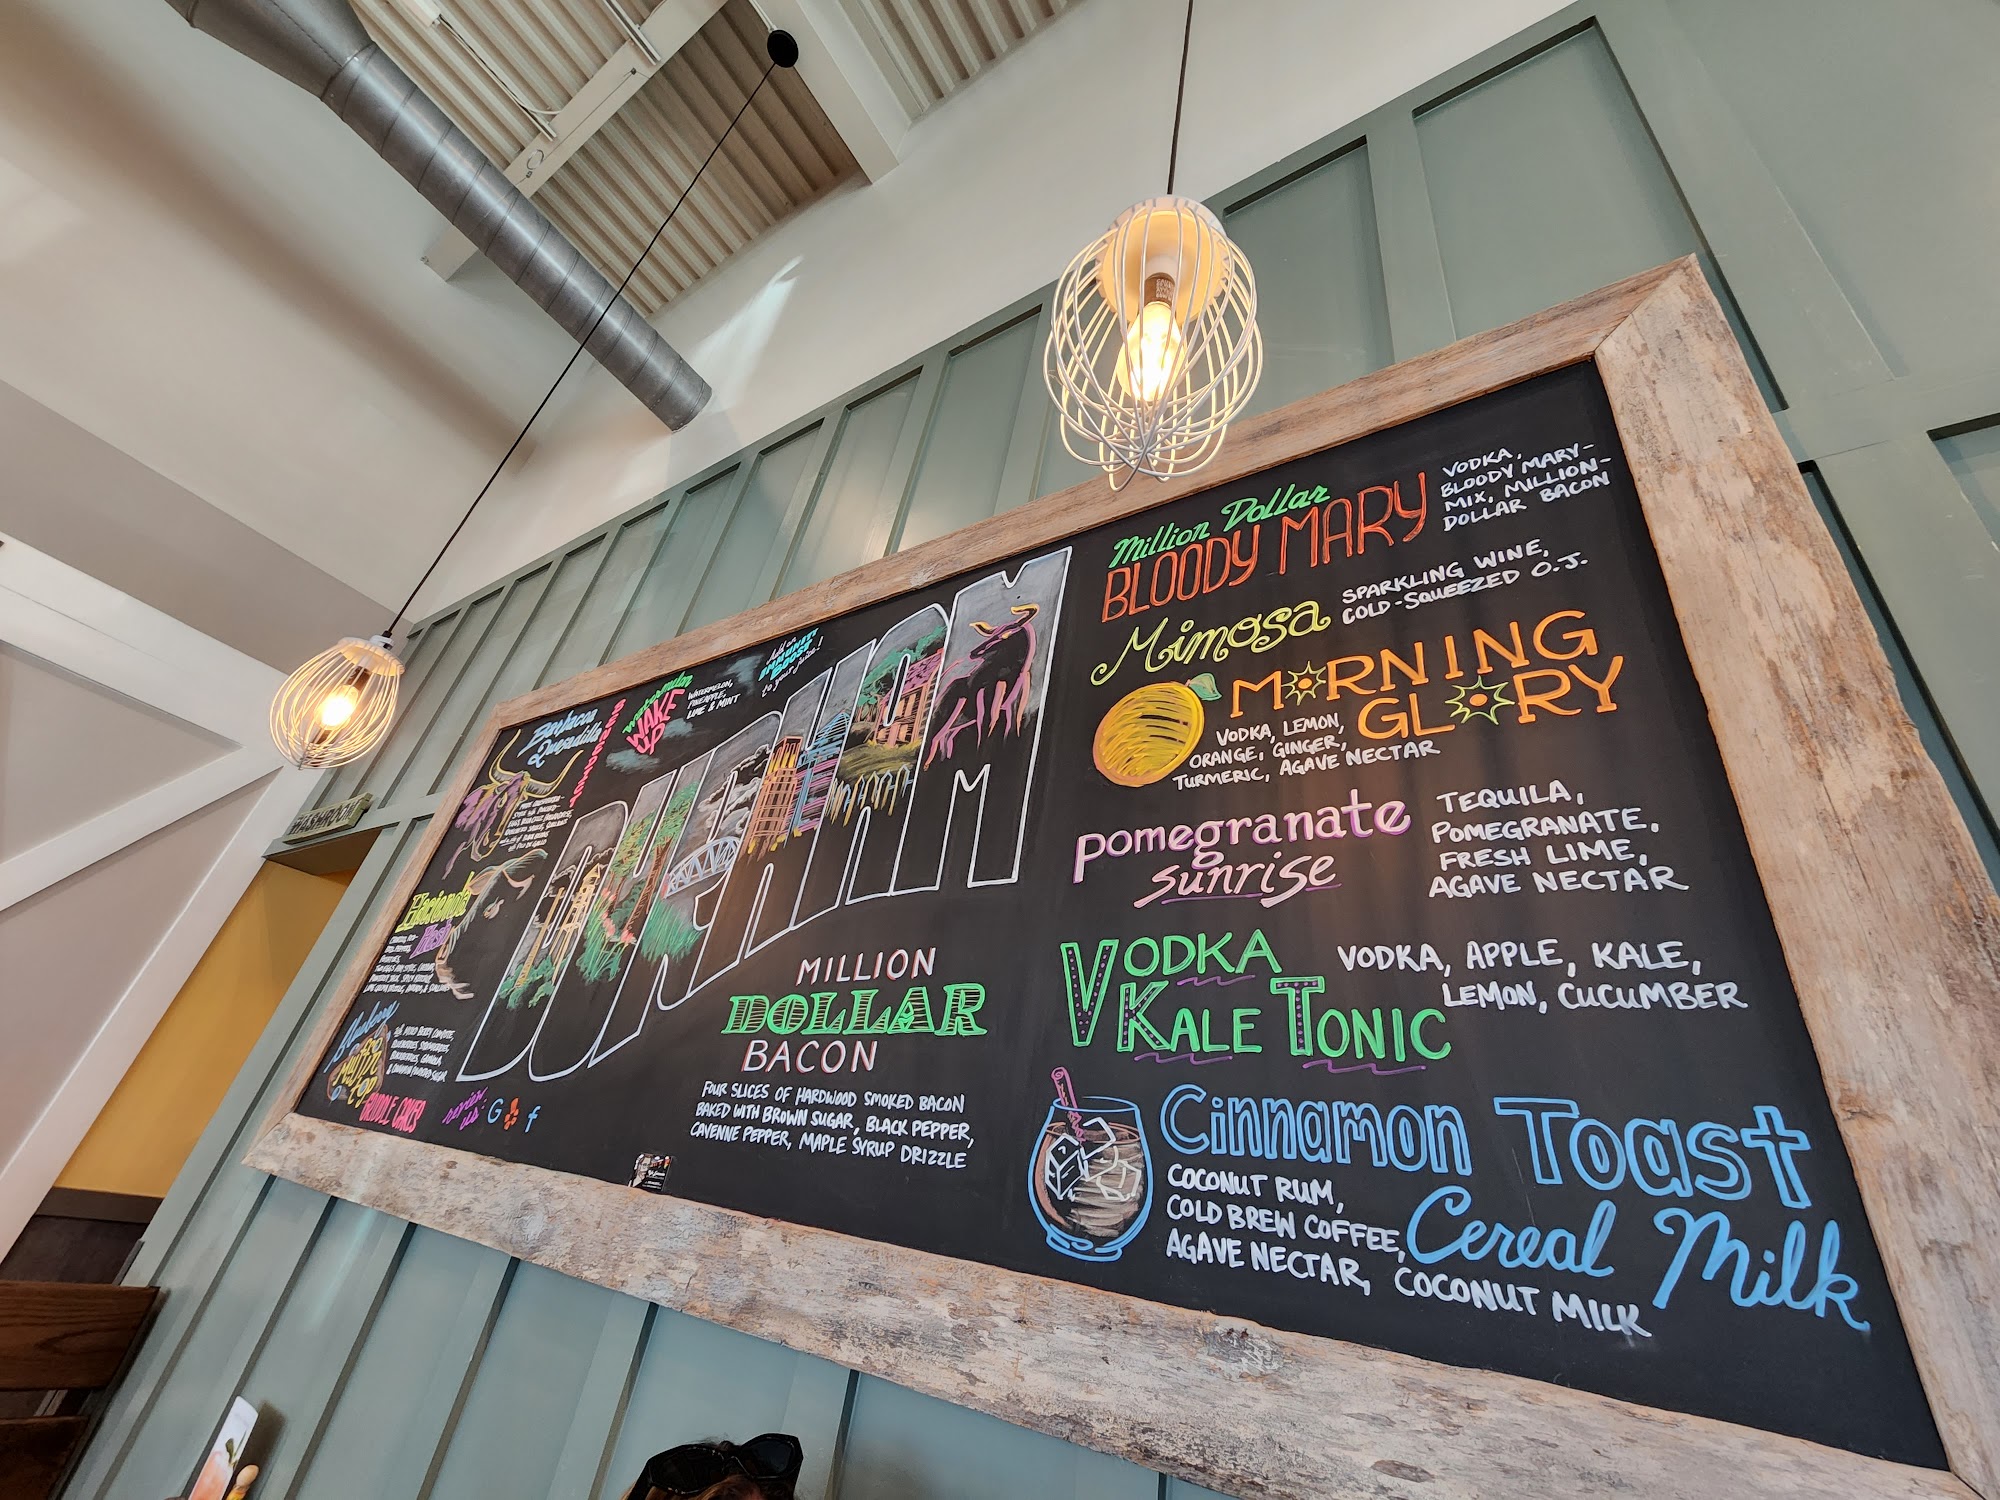 WASHROOM
Barbacoa
Quesadilla
Watermelon
WAKE
UP
WATERMELON,
PINEAPPLE,
LIME & MINT
Add an
IMMUNITY
BOOST
to your juice!
DURHAM
Hacienda
Hash
Blueberry
GRIDDLE CAKES
G f
MILLION
DOLLAR
BACON
FOUR SLICES OF HARDWOOD SMOKED BACON
BAKED WITH BROWN SUGAR, BLACK PEPPER,
CAYENNE PEPPER, MAPLE SYRUP DRIZZLE
Million Dollar
BLOODY MARY
VODKA,
BLOODY MARY-
MIX, MILLION-
DOLLAR BACON
Mimosa
SPARKLING WINE,
COLD-SQUEEZED O.J.
MORNING
GLORY
VODKA, LEMON,
ORANGE, GINGER,
TURMERIC, AGAVE NECTAR
pomegranate
sunrise
TEQUILA,
POMEGRANATE,
FRESH LIME,
AGAVE NECTAR
VODKA
KALE TONIC
VODKA, APPLE, KALE,
LEMON, CUCUMBER
Cinnamon Toast
Cereal Milk
COCONUT RUM,
COLD BREW COFFEE,
AGAVE NECTAR, COCONUT MILK